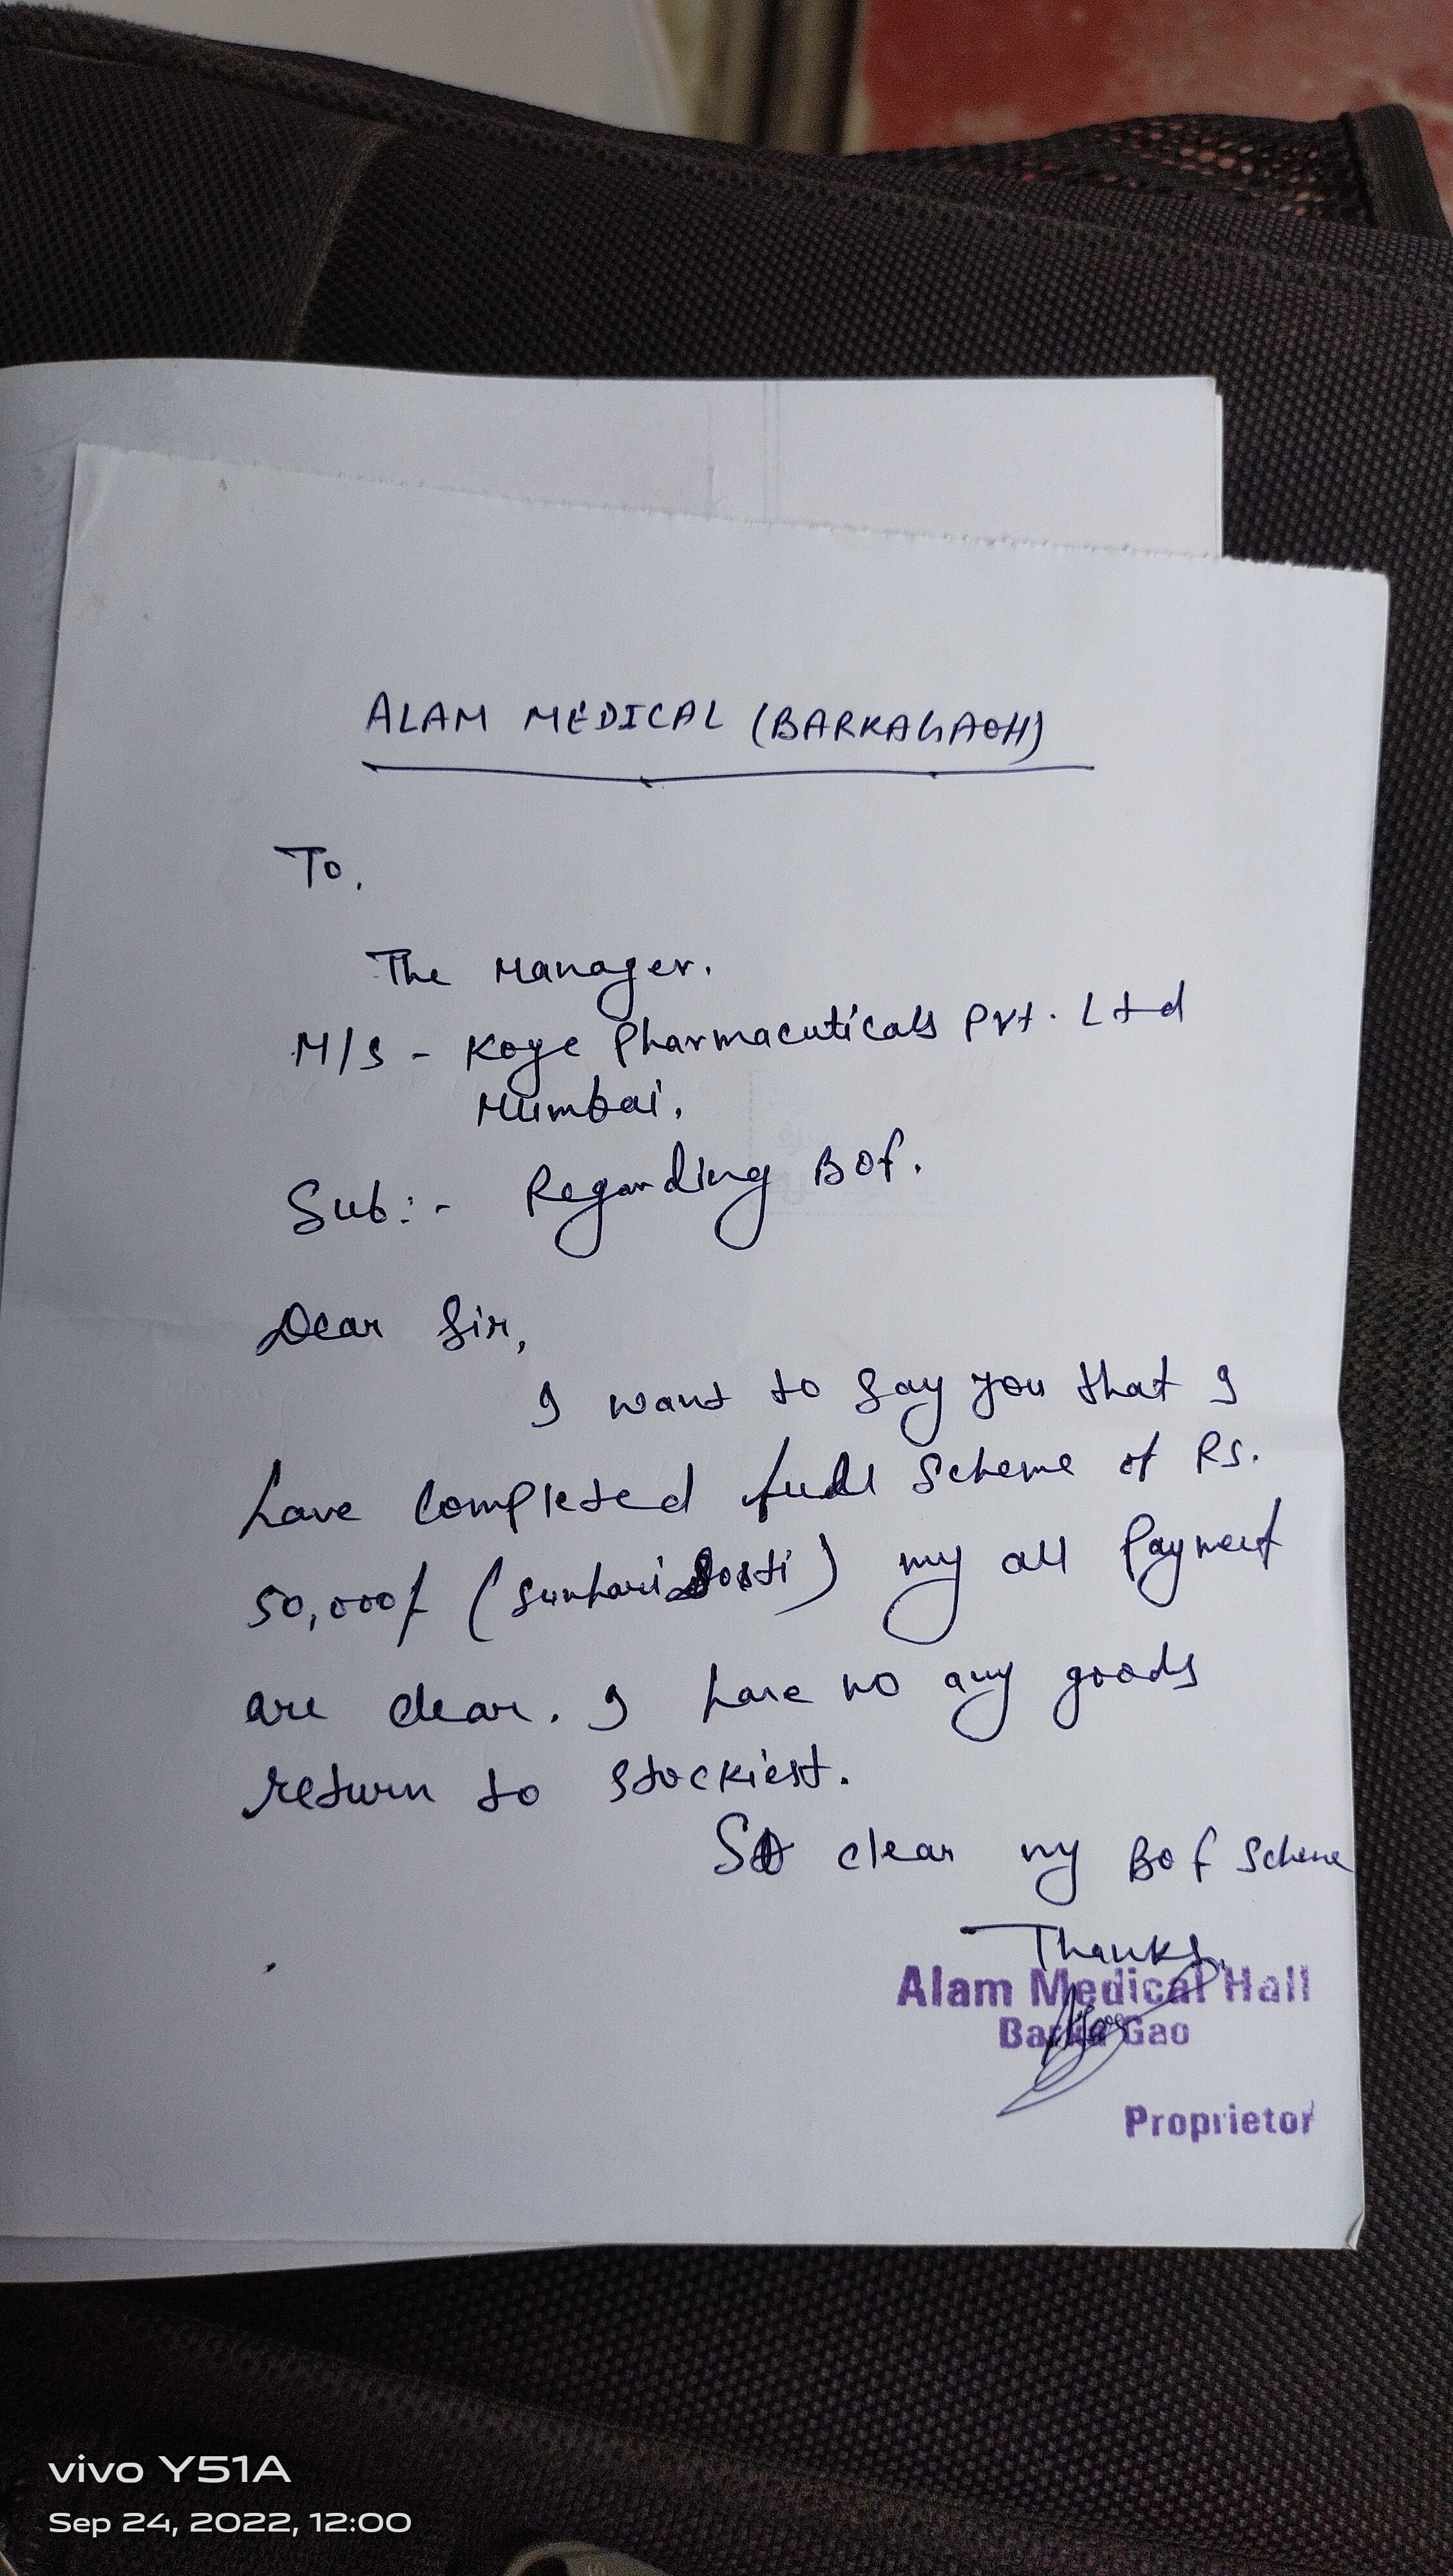 ALAM MEDICAL (BARKAGAOH)
To,
The Manager.
M/S - Koye Pharmaceuticals Pvt. Ltd
Mumbai.
Sub:- Regarding BOF.
Dear Sir,
I want to say you that I
have completed full scheme of RS.
50,000/ (Sunhari Dosti) my all Payment
are clear. I have no any goods
return to stockiest.
So clear my BOF Scheme
Thanks.
Alam Medical Hall
Barka Gao
Proprietor
vivo Y51A
Sep 24, 2022, 12:00